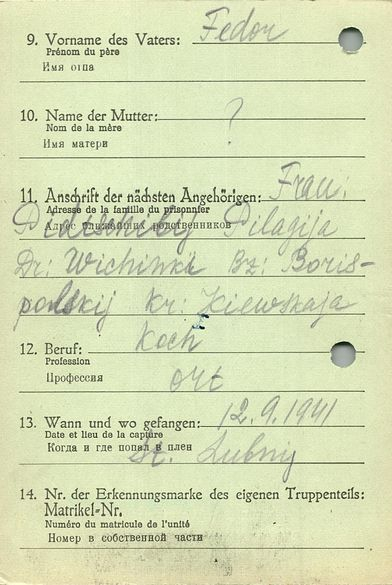 9. Vorname des Vaters: Fedor
Prénom du père
Имя отца
10. Name der Mutter: ?
Nom de la mère
Имя матери
11. Anschrift der nächsten Angehörigen: Frau:
Adresse de la famille du prisonnier
Адрес ближайших родственников
Pilagija
Dr: Wichinki Bz: Boris-
polskij Kr: Kiewskaja
12. Beruf: Koch
Profession
Профессия
ort
13. Wann und wo gefangen: 12.9.1941
Date et lieu de la capture
Когда и где попал в плен
St. Lubny
14. Nr. der Erkennungsmarke des eigenen Truppenteils:
Matrikel-Nr.
Numéro du matricule de l'unité
Номер в собственной части